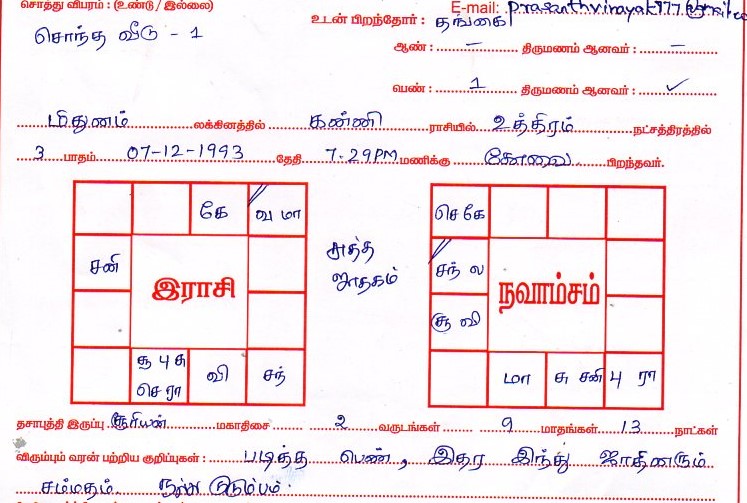 சொத்து விபரம் : (உண்டு / இல்லை)
சொந்த வீடு - 1
E-mail:
உடன் பிறந்தோர் : தங்கை
ஆண் : – திருமணம் ஆனவர் : –
பெண் : 1 திருமணம் ஆனவர் : ✓
மிதுனம் லக்கினத்தில் கன்னி ராசியில் உத்திரம் நட்சத்திரத்தில்
3 பாதம் 07-12-1993 தேதி 7.29PM மணிக்கு கோவை பிறந்தவர்.
கே வ மா
சனி
இராசி
சூ பு சு
செ ரா வி சந்
சுத்த
ஜாதகம்
செ கே
சந் ல
நவாம்சம்
சூ வி
மா சு சனி பு ரா
தசாபுத்தி இருப்பு சூரியன் மகாதிசை 2 வருடங்கள் 9 மாதங்கள் 13 நாட்கள்
விரும்பும் வரன் பற்றிய குறிப்புகள் : படித்த பெண், இதர இந்து ஜாதியினரும்
சம்மதம். நல்ல குடும்பம்.